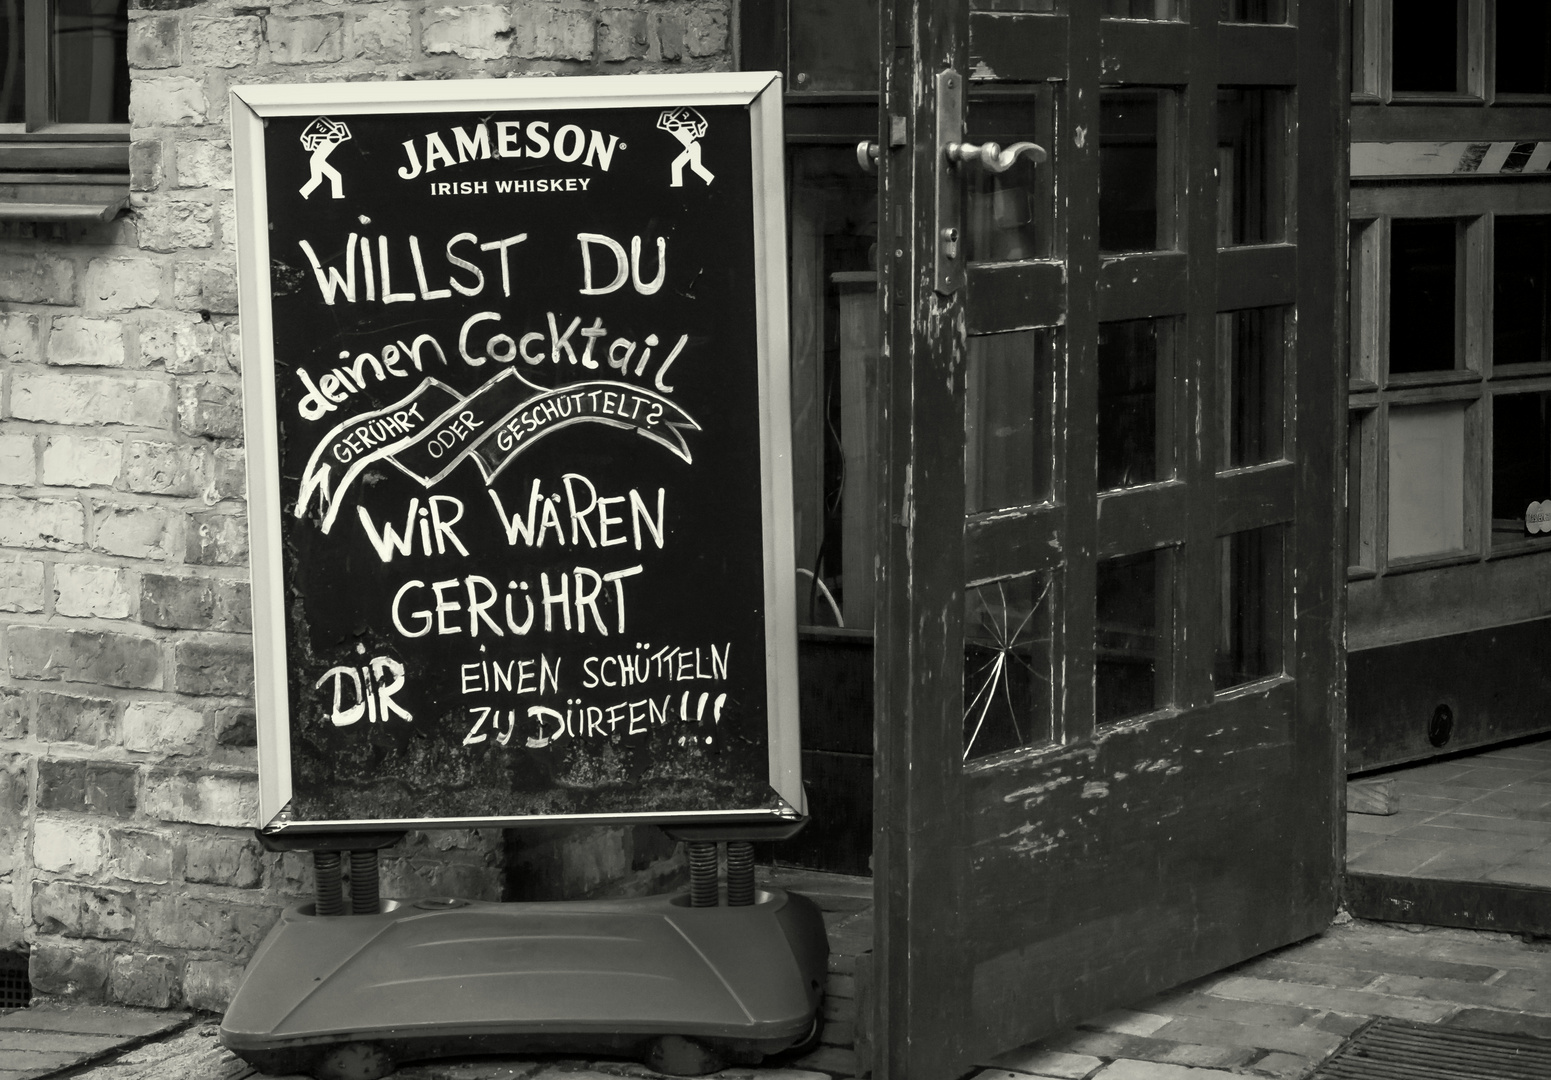 JAMESON®
IRISH WHISKEY
WiLLST DU
deinen Cocktail
GERÜHRT ODER GESCHÜTTELT?
WiR WÄREN
GERÜHRT
DiR EiNEN SCHÜTTELN
ZU DÜRFEN!!!